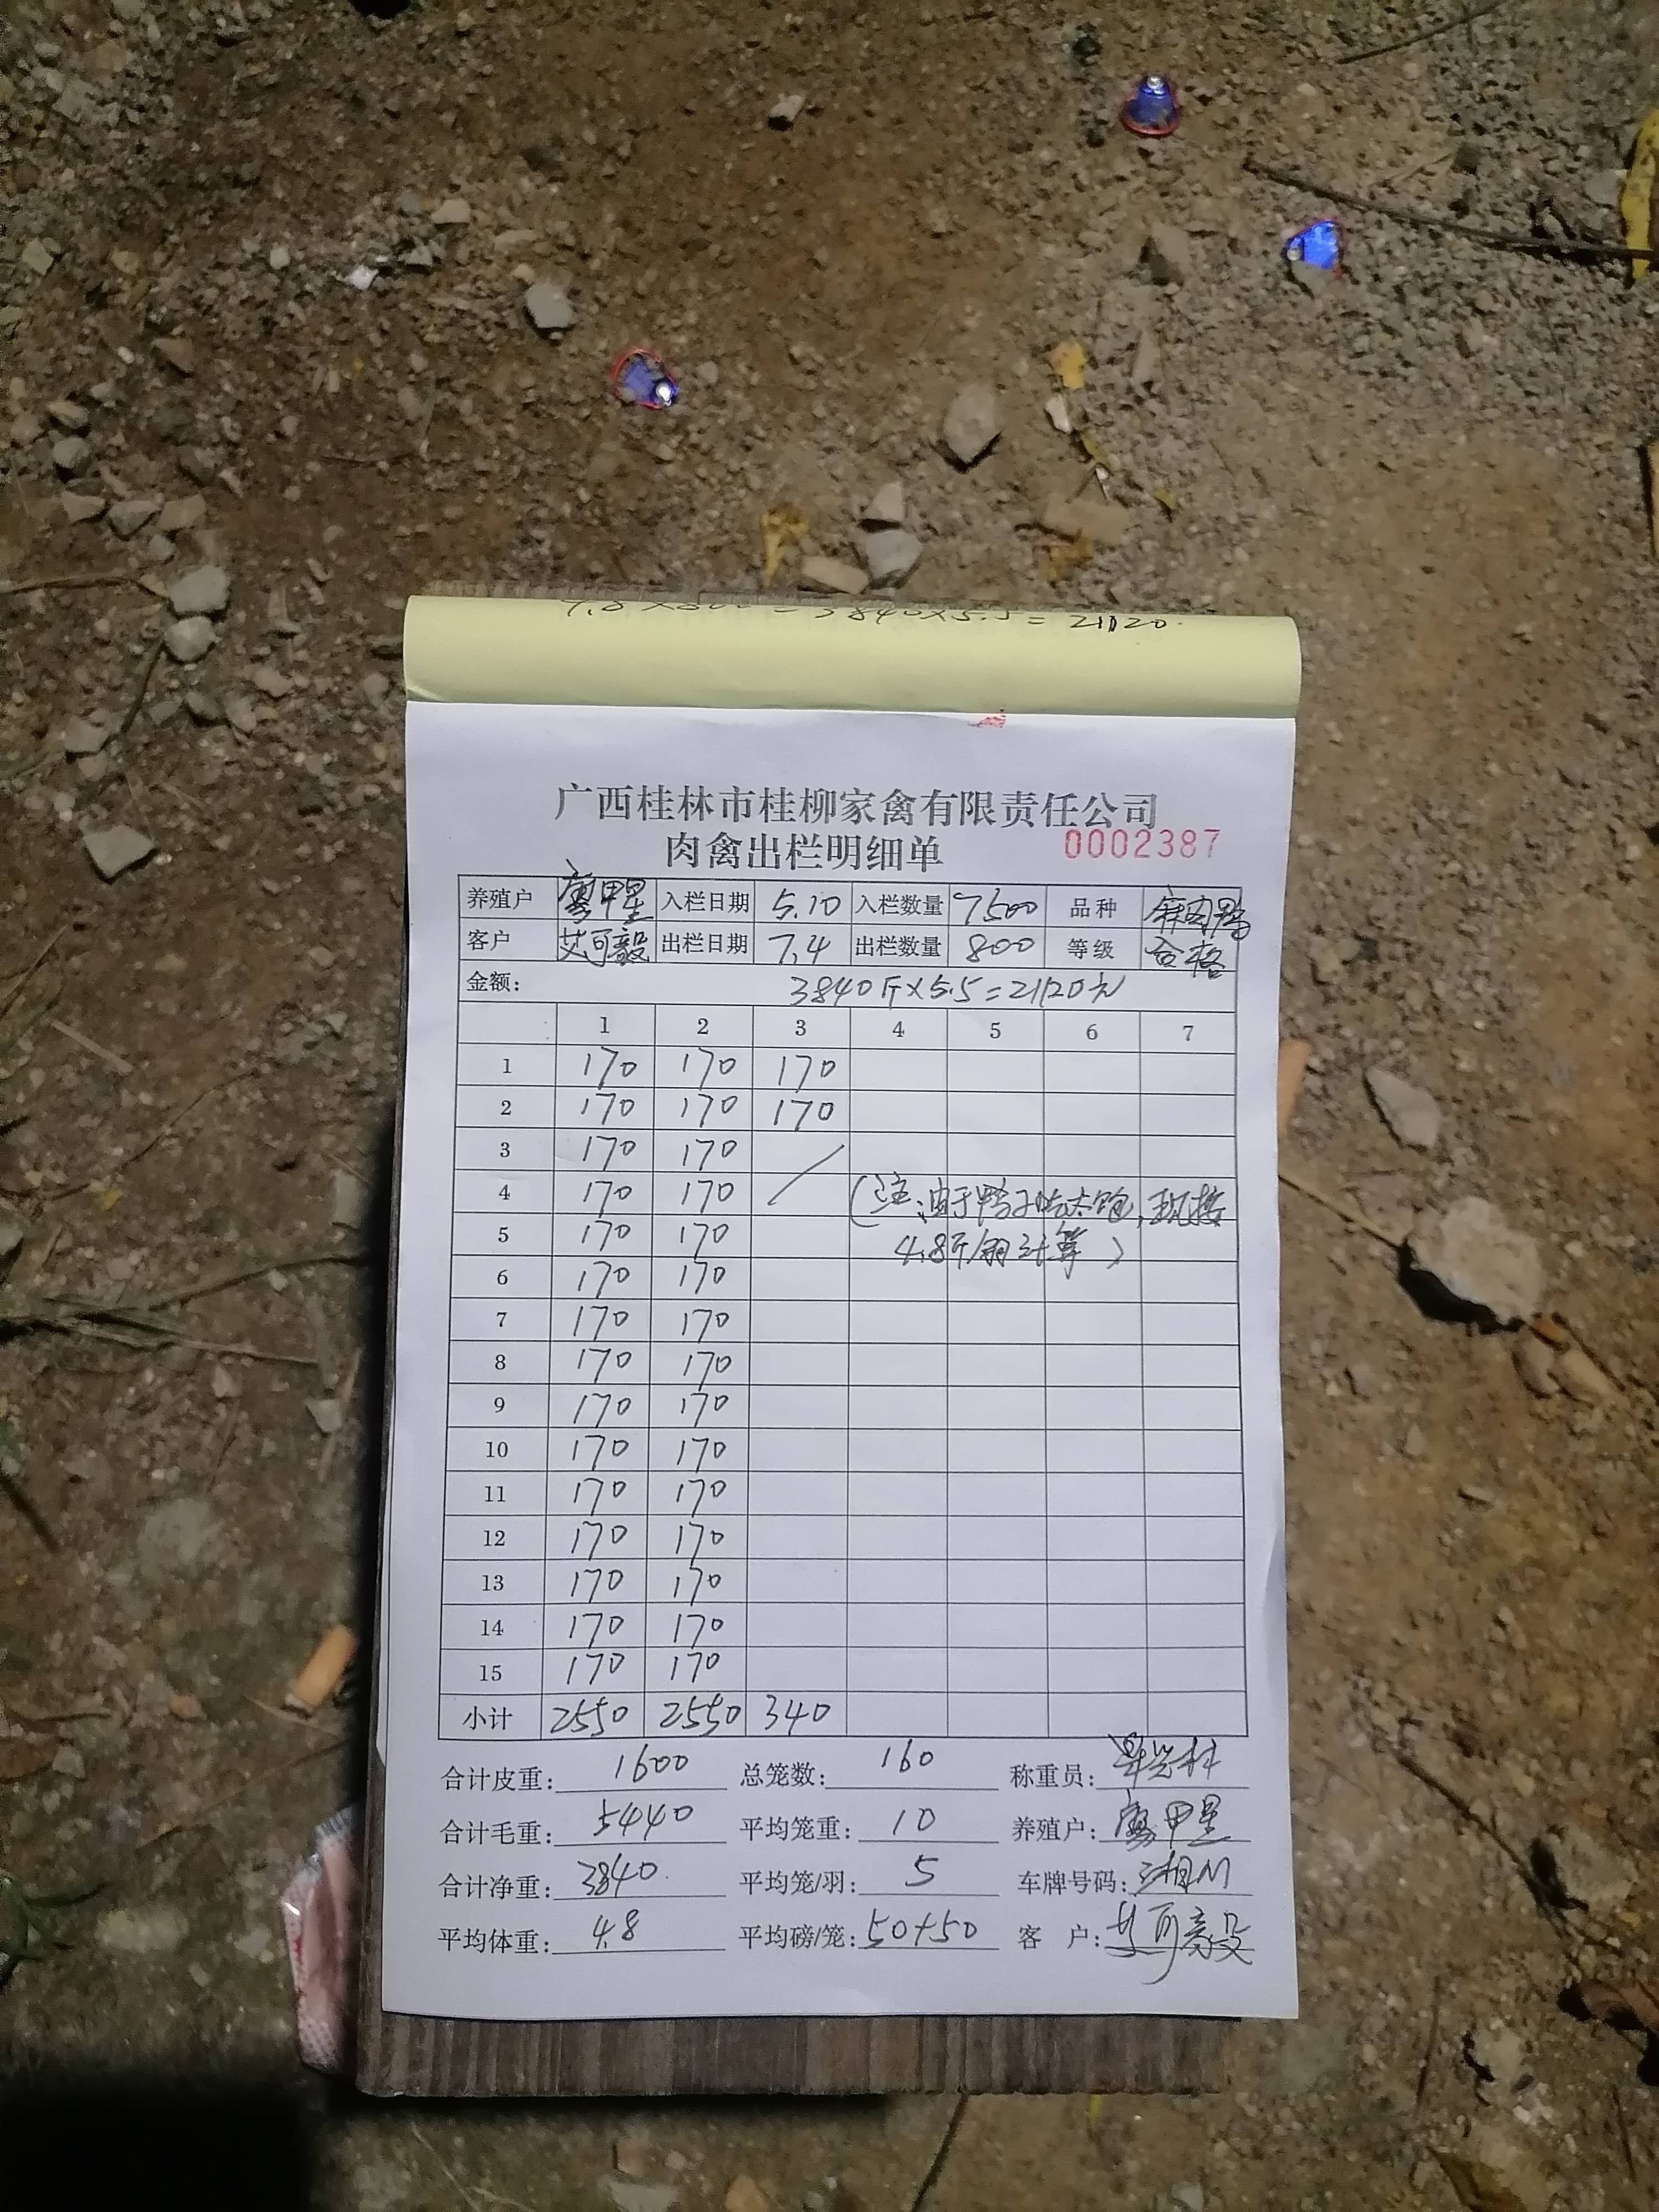 =3840×5.5=21120.
广西桂林市桂柳家禽有限责任公司
肉禽出栏明细单 0002387
养殖户 廖甲星 入栏日期 5.10 入栏数量 7500 品种 麻肉鸭
客户 艾可毅 出栏日期 7.4 出栏数量 800 等级 合格
金额: 3840斤×5.5=21120元
1 2 3 4 5 6 7
1 170 170 170
2 170 170 170
3 170 170
4 170 170
5 170 170
6 170 170
7 170 170
8 170 170
9 170 170
10 170 170
11 170 170
12 170 170
13 170 170
14 170 170
15 170 170
(注:由于鸭子吃太饱,现按
4.8斤/羽计算)
小计 2550 2550 340
合计皮重: 1600 总笼数: 160 称重员:
合计毛重: 5440 平均笼重: 10 养殖户: 廖甲星
合计净重: 3840. 平均笼/羽: 5 车牌号码: 湘M
平均体重: 4.8 平均磅/笼: 50+50 客 户: 艾可毅